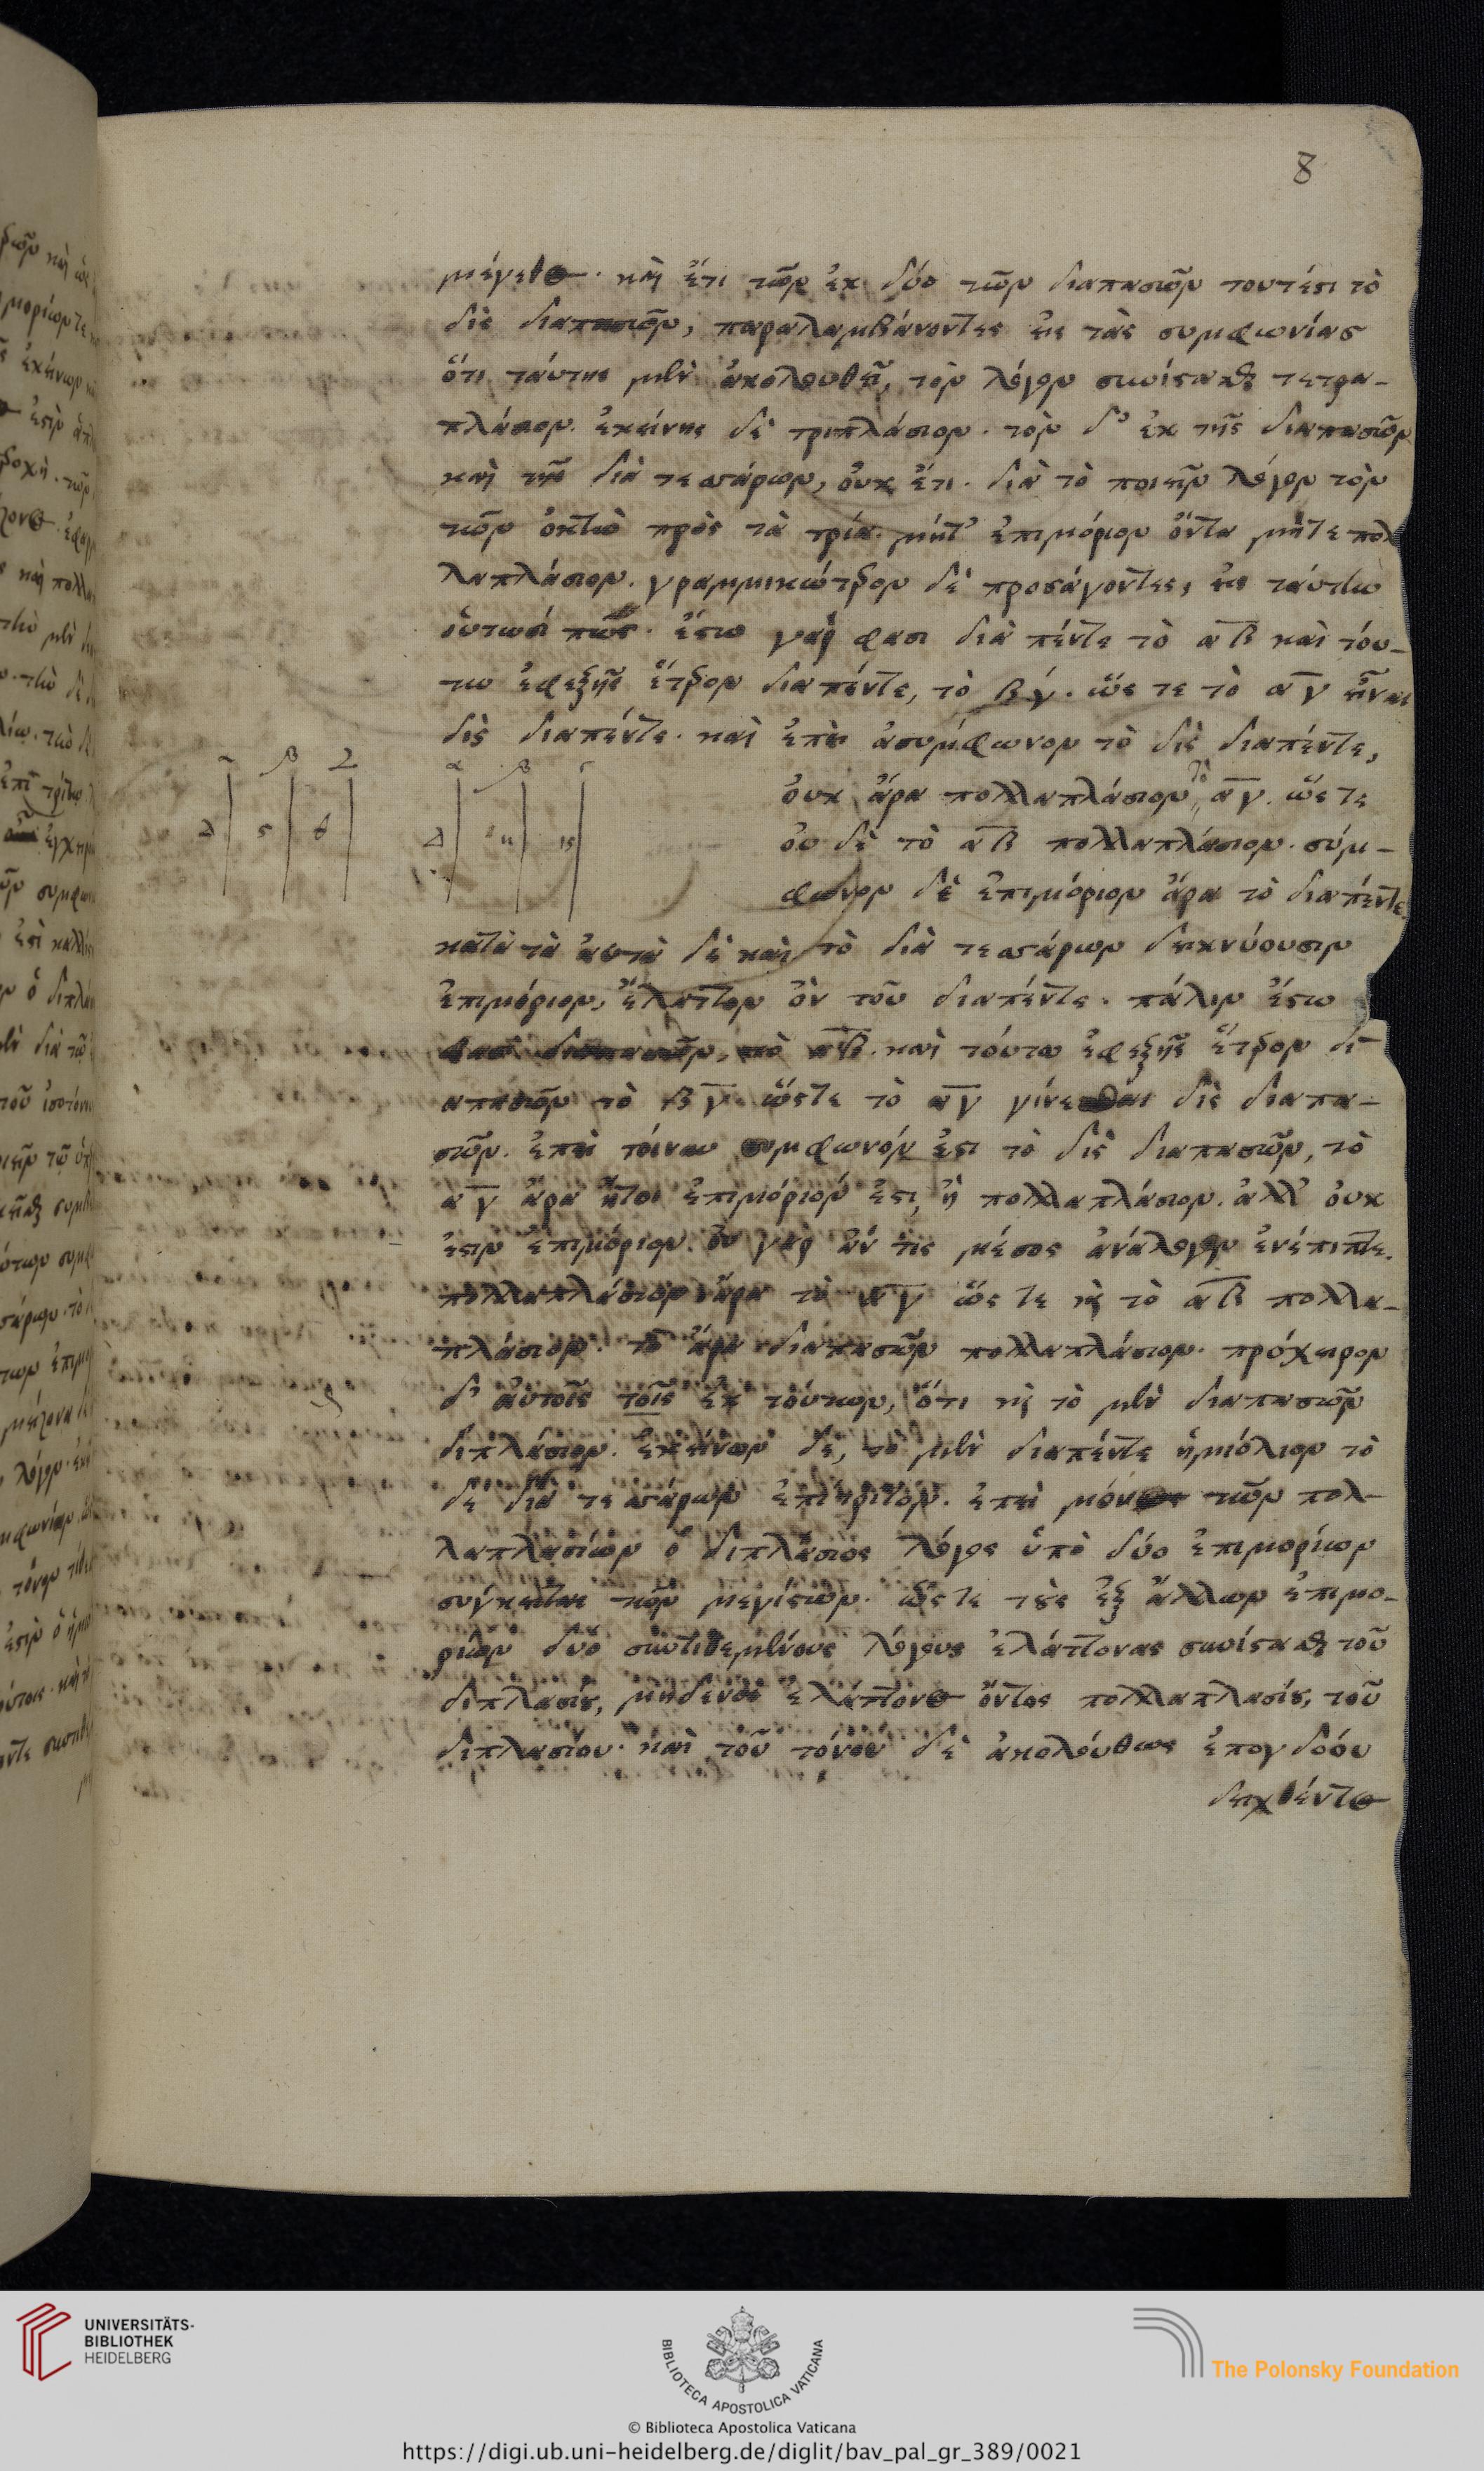 8
μέγεθος. καὶ ἔτι τῶν ἐκ δύο τῶν διαπασῶν τουτέστι τὸ
δὶς διαπασῶν, παραλαμβάνοντες εἰς τὰς συμφωνίας
ὅτι ταύτης μὲν ἀκολουθεῖ, τὸν λόγον συνίστασθαι τετρα-
πλάσιον. ἐκείνης δὲ τριπλάσιον. τὸν δ' ἐκ τῆς διαπασῶν
καὶ τῆς διὰ τεσσάρων, οὐκ ἔτι. διὰ τὸ ποιεῖν λόγον τὸν
τῶν ὀκτὼ πρὸς τὰ τρία. μήτ' ἐπιμόριον ὄντα μήτε πολ
λαπλάσιον. γραμμικώτερον δὲ προσάγοντες, εἰς ταύτην
οὑτωσί πως. ἔστω γάρ φασι διὰ πέντε τὸ αβ καὶ τού-
τω ἐφεξῆς ἕτερον διαπέντε, τὸ βγ. ὥς τε τὸ αγ εἶναι
δὶς διαπέντε. καὶ ἐπεὶ ἀσύμφωνον τὸ δὶς διαπέντε,
οὐκ ἄρα πολλαπλάσιον τὸ αγ. ὥς τε
οὐ δὲ τὸ αβ πολλαπλάσιον. σύμ-
φωνον δὲ ἐπιμόριον ἄρα τὸ διαπέντε.
β
δ ς θ
α β γ
δ η ις
κατὰ τὰ αυτὰ δὲ καὶ τὸ διὰ τεσσάρων δεικνύουσιν
ἐπιμόριον, ἔλαττον ὂν τοῦ διαπέντε. πάλιν ἔστω
φασὶ διαπασῶν, τὸ αβ. καὶ τούτω ἐφεξῆς ἕτερον δι
απασῶν τὸ βγ ὥστε τὸ αγ γίνεσθαι δὶς διαπα-
σῶν. ἐπεὶ τοίνυν συμφωνόν ἐστι τὸ δὶς διαπασῶν, τὸ
αγ ἄρα ἤτοι ἐπιμόριόν ἐστι, ἢ πολλαπλάσιον. ἀλλ' οὐκ
ἐστιν ἐπιμόριον. οὐ γὰρ ἄν τις μέσος ἀνάλογον ἐνέπιπτε.
πολλαπλάσιον ἄρα τὸ αγ ὥς τε κὴ τὸ αβ πολλα-
πλάσιον. τὸ ἄρα διαπασῶν πολλαπλάσιον. πρόχειρον
δ' αὐτοῖς τοῖς ἐκ τούτων, ὅτι κὴ τὸ μὲν διαπασῶν
διπλάσιον. ἐκείνων δὲ, τὸ μὲν διαπέντε ἡμιόλιον τὸ
δὲ διὰ τεσσάρων ἐπίτριτον. ἐπεὶ μόνος τῶν πολ-
λαπλασίων ὁ διπλάσιος λόγος ὑπὸ δύο ἐπιμορίων
σύγκειται τῶν μεγίστων. ὥς τε τοὺς ἐξ ἄλλων ἐπιμο-
ρίων δύο συντιθεμένους λόγους ἐλάττονας συνίστασθαι τοῦ
διπλασίου, μηδενὸς ἐλάττονος ὄντος πολλαπλασίου, τοῦ
διπλασίου. καὶ τοῦ τόνου δὲ ἀκολούθως ἐπογδόου
δειχθέντος
UNIVERSITÄTS-
BIBLIOTHEK
HEIDELBERG
BIBLIOTECA APOSTOLICA VATICANA
The Polonsky Foundation
© Biblioteca Apostolica Vaticana
https://digi.ub.uni-heidelberg.de/diglit/bav_pal_gr_389/0021